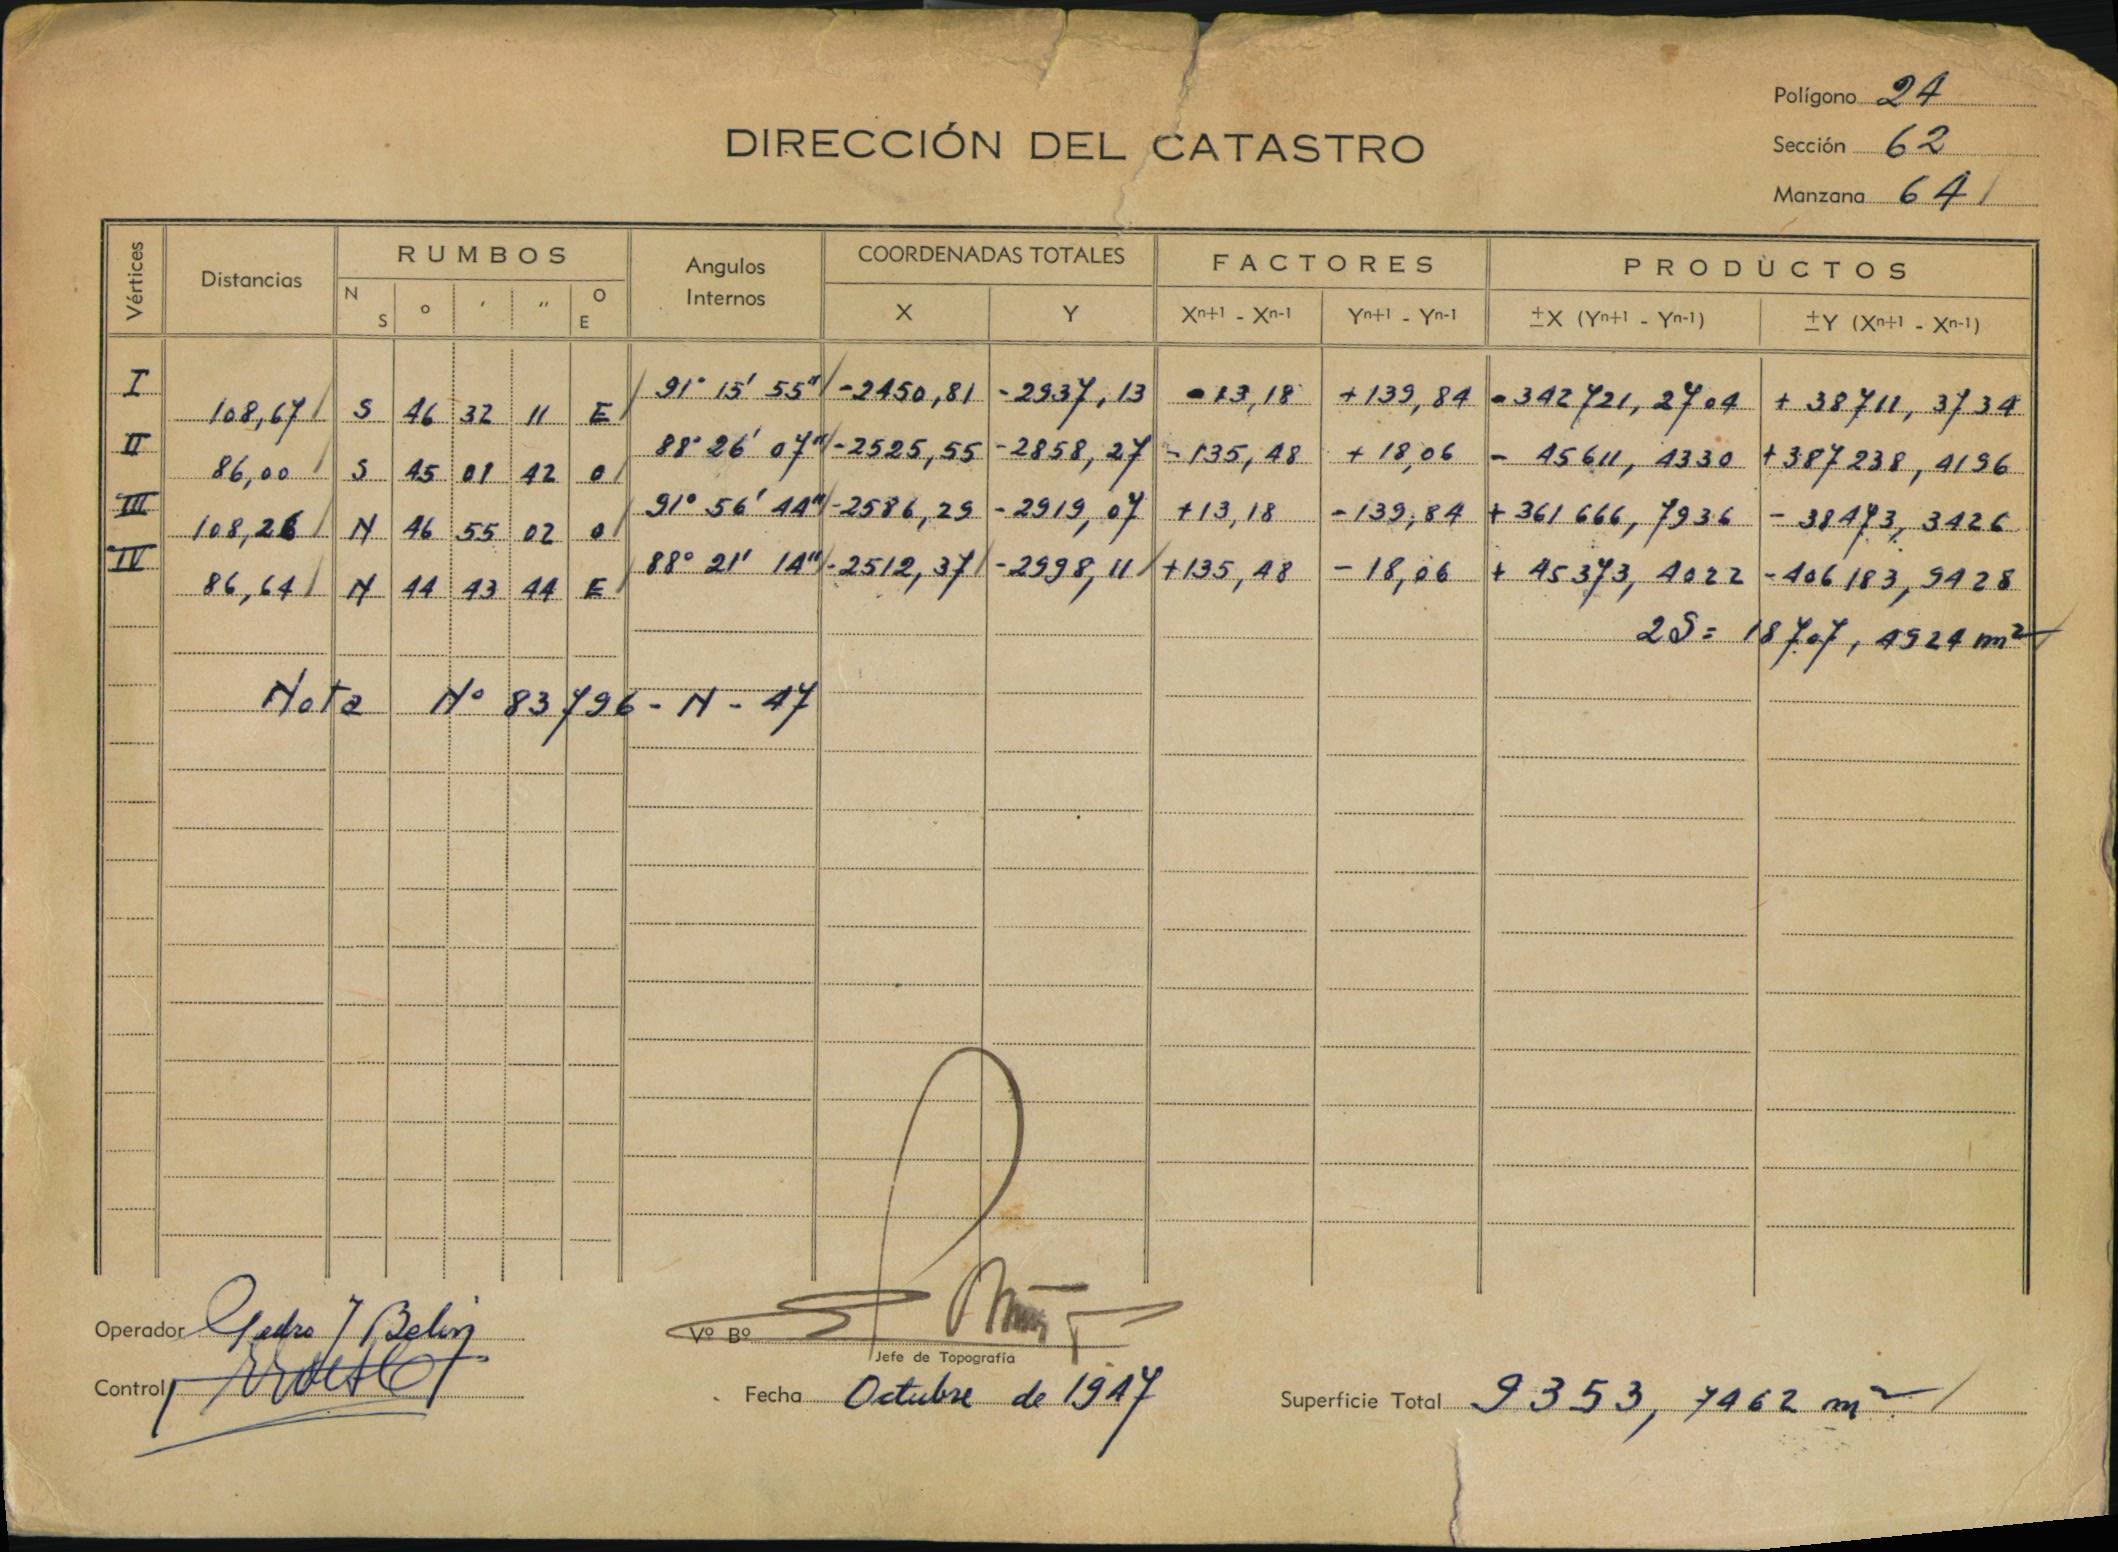 Polígono 24
DIRECCIÓN DEL CATASTRO
Sección 62
Manzana 64
Vértices Distancias RUMBOS Angulos Internos COORDENADAS TOTALES FACTORES PRODUCTOS
N S ° ′ ″ O E X Y Xn+1 - Xn-1 Yn+1 - Yn-1 ±X (Yn+1 - Yn-1) ±Y (Xn+1 - Xn-1)
I 91° 15′ 55″ -2450,81 -2937,13 -13,18 +139,84 -342721,2704 +38711,3734
108,67 S 46 32 11 E
II 88° 26′ 07″ -2525,55 -2858,27 -135,48 +18,06 -45611,4330 +387238,4196
86,00 S 45 01 42 O
III 91° 56′ 44″ -2586,29 -2919,07 +13,18 -139,84 +361666,7936 -38473,3426
108,26 N 46 55 02 O
IV 88° 21′ 14″ -2512,37 -2998,11 +135,48 -18,06 +45373,4022 -406183,9428
86,64 N 44 43 44 E
2S = 18707,4924 m²
Nota Nº 83796 - N - 47
Operador Pedro J Belin
Vº Bº
Jefe de Topografía
Control
Fecha Octubre de 1947
Superficie Total 9353,7462 m²